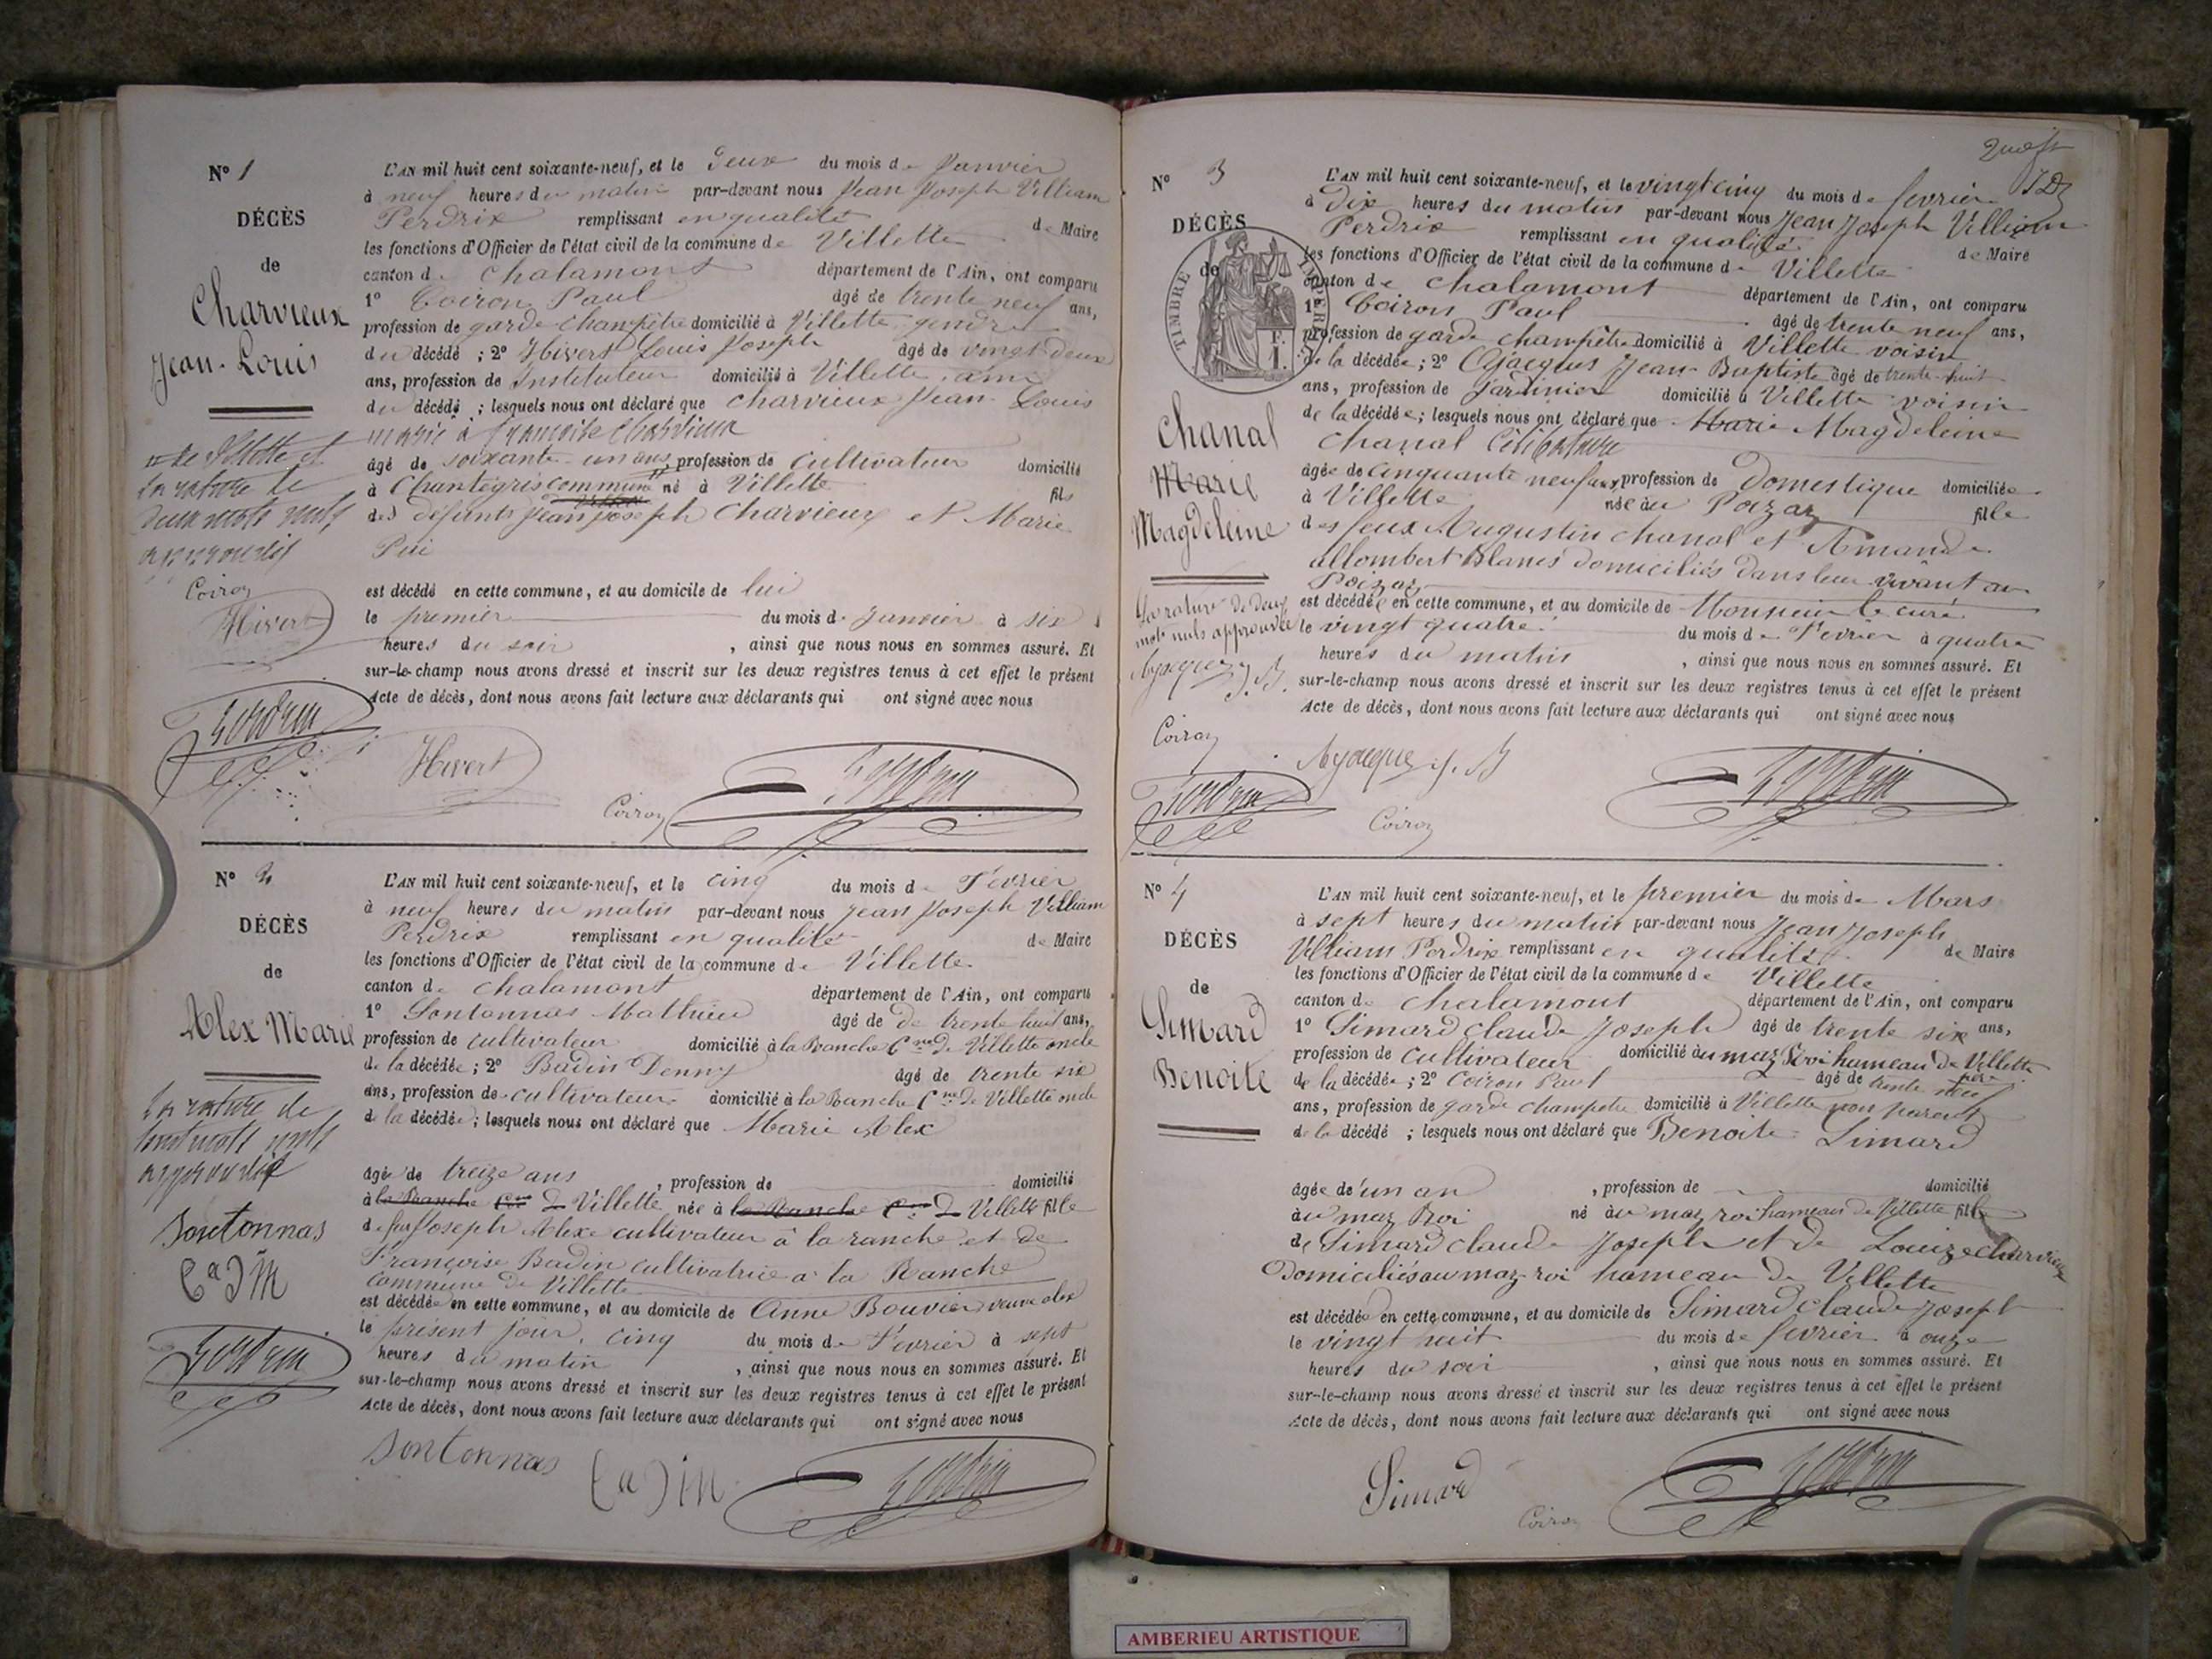 Nº 1
DÉCÈS
de
Charvieux
Jean-Louis
de Villette et
la rature de
deux mots nuls
approuvés
Coiron
Hivert
L'AN mil huit cent soixante-neuf, et le Deux du mois de Janvier
à neuf heures du matin par-devant nous Jean Joseph Villiam
Perdrix remplissant en qualité de Maire
les fonctions d'Officier de l'état civil de la commune de Villette
canton de Chalamont département de l'Ain, ont comparu
1º Coiron Paul âgé de trente neuf ans,
profession de garde champêtre domicilié à Villette gendre
du décédé ; 2º Hivert Louis Joseph âgé de vingt-deux
ans, profession de Instituteur domicilié à Villette, ami
du décédé ; lesquels nous ont déclaré que Charvieux Jean Louis
marié à Françoise Chardieux
âgé de soixante-un ans, profession de cultivateur domicilié
à Chantegris commune né à Villette fils
des défunts Jean Joseph Charvieux et Marie
est décédé en cette commune, et au domicile de lui
le premier du mois de Janvier à six
heures du soir , ainsi que nous nous en sommes assuré. Et
sur-le-champ nous avons dressé et inscrit sur les deux registres tenus à cet effet le présent
Acte de décès, dont nous avons fait lecture aux déclarants qui ont signé avec nous
Hivert
Coiron
Nº 2
DÉCÈS
de
Alex Marie
La rature de
huit mots nuls
approuvée
Sontonnas
BaDin
L'AN mil huit cent soixante-neuf, et le cinq du mois de Février
à neuf heures du matin par-devant nous Jean Joseph Villiam
Perdrix remplissant en qualité de Maire
les fonctions d'Officier de l'état civil de la commune de Villette
canton de Chalamont département de l'Ain, ont comparu
1º Sontonnas Mathieu âgé de de trente huit ans,
profession de cultivateur domicilié à la Ranche Cne de Villette oncle
de la décédée ; 2º Badin Denny âgé de trente six
ans, profession de cultivateur domicilié à la Ranche Cne de Villette oncle
de la décédée ; lesquels nous ont déclaré que Marie Alex
âgée de treize ans , profession de domicilié
à la Ranche Cne de Villette née à la Ranche Cne de Villette fille
de feu Joseph Alex cultivateur à la ranche et de
Françoise Badin cultivatrice à la Ranche
commune de Villette
est décédée en cette commune, et au domicile de Anne Bouvier veuve alex
le présent jour, cinq du mois de Février à sept
heures du matin , ainsi que nous nous en sommes assuré. Et
sur-le-champ nous avons dressé et inscrit sur les deux registres tenus à cet effet le présent
Acte de décès, dont nous avons fait lecture aux déclarants qui ont signé avec nous
Sontonnas
BaDin
Nº 3
DÉCÈS
de
TIMBRE IMPERIAL
1 F.
Chanal
Marie
Magdeleine
La rature de deux
mots nuls approuvée
Coiron
L'AN mil huit cent soixante-neuf, et le vingt cinq du mois de fevrier
à Dix heures du matin par-devant nous Jean Joseph Villiam
Perdrix remplissant en qualité de Maire
les fonctions d'Officier de l'état civil de la commune de Villette
canton de Chalamont département de l'Ain, ont comparu
1º Coiron Paul âgé de trente neuf ans,
profession de garde champêtre domicilié à Villette voisin
de la décédée ; 2º Ajacques Jean Baptiste âgé de trente-huit
ans, profession de Jardinier domicilié à Villette voisin
de la décédée ; lesquels nous ont déclaré que Marie Magdeleine
Chanal Célibataire
âgée de cinquante neuf ans, profession de Domestique domiciliée
à Villette née au Poizat fille
des feux Augustin Chanal et Amande
allombert Blanc domiciliés dans leur vivant au
Poizat
est décédée en cette commune, et au domicile de Monsieur le curé
le vingt quatre du mois de Février à quatre
heures du matin , ainsi que nous nous en sommes assuré. Et
sur-le-champ nous avons dressé et inscrit sur les deux registres tenus à cet effet le présent
Acte de décès, dont nous avons fait lecture aux déclarants qui ont signé avec nous
Ajacque j. B
Coiron
Nº 4
DÉCÈS
de
Simard
Benoite
L'AN mil huit cent soixante-neuf, et le premier du mois de Mars
à sept heures du matin par-devant nous Jean Joseph
Villiam Perdrix remplissant en qualité de Maire
les fonctions d'Officier de l'état civil de la commune de Villette
canton de Chalamont département de l'Ain, ont comparu
1º Simard Claude Joseph âgé de trente six ans,
profession de Cultivateur domicilié au maz Roi hameau de Villette père
de la décédée ; 2º Coiron Paul âgé de trente neuf
ans, profession de garde champetre domicilié à Villette non parent
de la décédé ; lesquels nous ont déclaré que Benoite Simard
âgée de un an , profession de domicilié
au maz Roi né au maz roi hameau de Villette fille
de Simard Claude Joseph et de Louize Charvieux
Domiciliés au maz-roi hameau de Villette
est décédée en cette commune, et au domicile de Simard Claude Joseph
le vingt huit du mois de fevrier à onze
heures du soir , ainsi que nous nous en sommes assuré. Et
sur-le-champ nous avons dressé et inscrit sur les deux registres tenus à cet effet le présent
Acte de décès, dont nous avons fait lecture aux déclarants qui ont signé avec nous
Simard
Coiron
AMBERIEU ARTISTIQUE